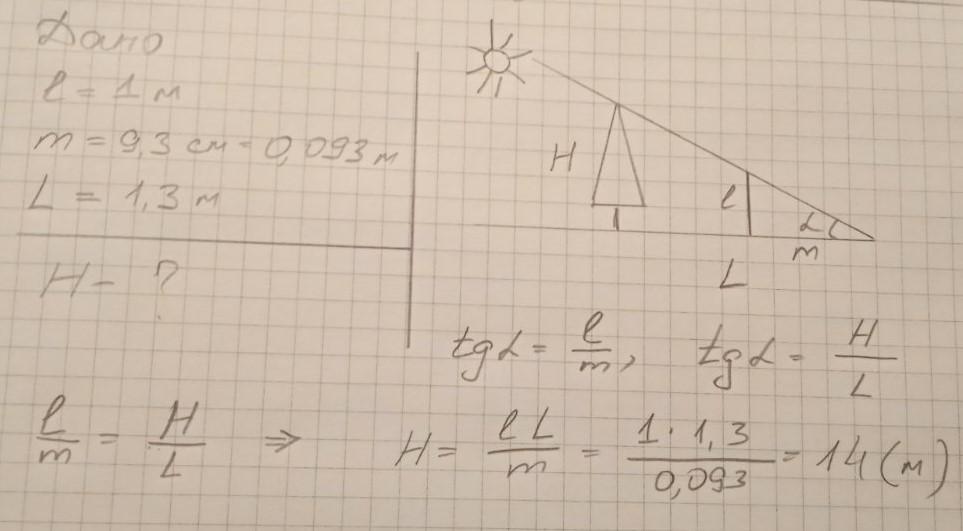 Дано
l = 1 м
m = 9,3 см = 0,093 м
L = 1,3 м
H - ?
H
l
α
m
L
tg α = l/m, tg α = H/L
l/m = H/L ⇒ H = l L/m = 1 · 1,3/0,093 = 14 (м)